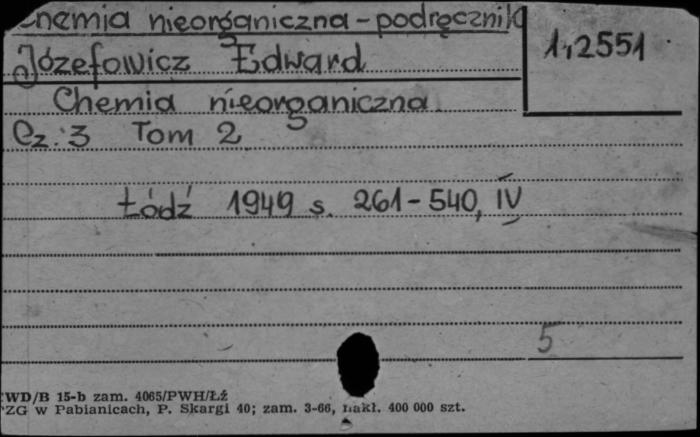 Chemia nieorganiczna - podręcznik
1,2551
Józefowicz Edward
Chemia nieorganiczna
Cz. 3 Tom 2
Łódź 1949 s. 261-540, IV
5
WD/B 15-b zam. 4065/PWH/Łź
PZG w Pabianicach, P. Skargi 40; zam. 3-66, nakł. 400 000 szt.